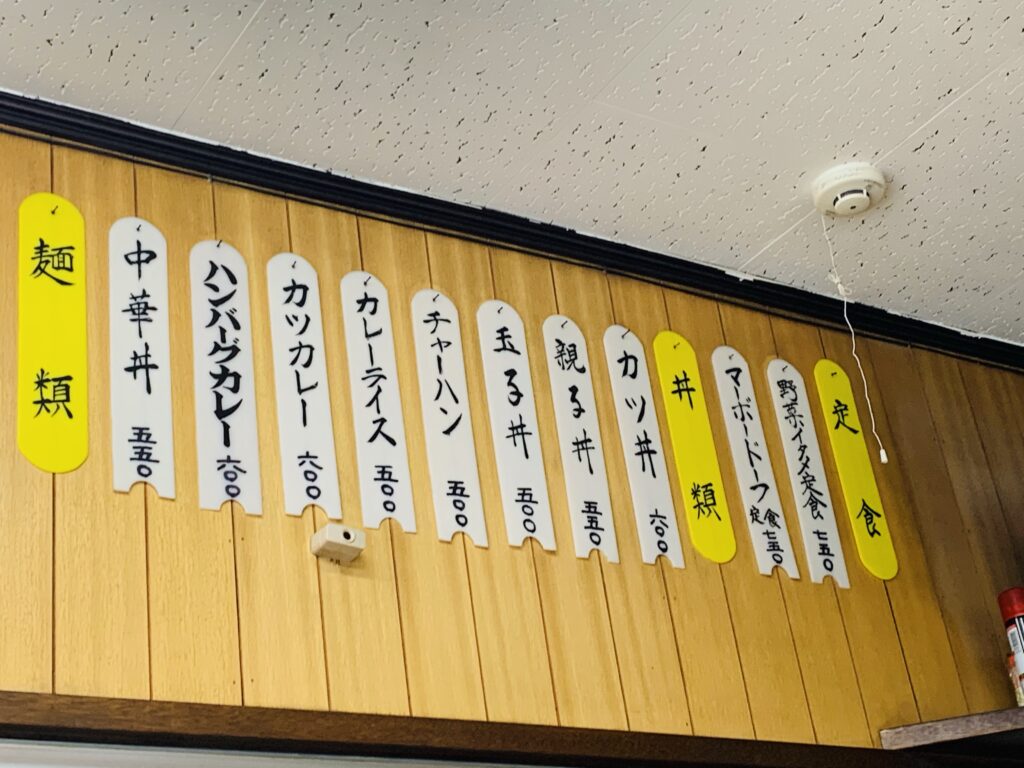 定食
野菜イタメ定食 七五〇
マーボードーフ定食 七五〇
丼類
カツ丼 六〇〇
親子丼 五五〇
玉子丼 五〇〇
チャーハン 五〇〇
カレーライス 五〇〇
カツカレー 六〇〇
ハンバーグカレー 六〇〇
中華丼 五五〇
麺類